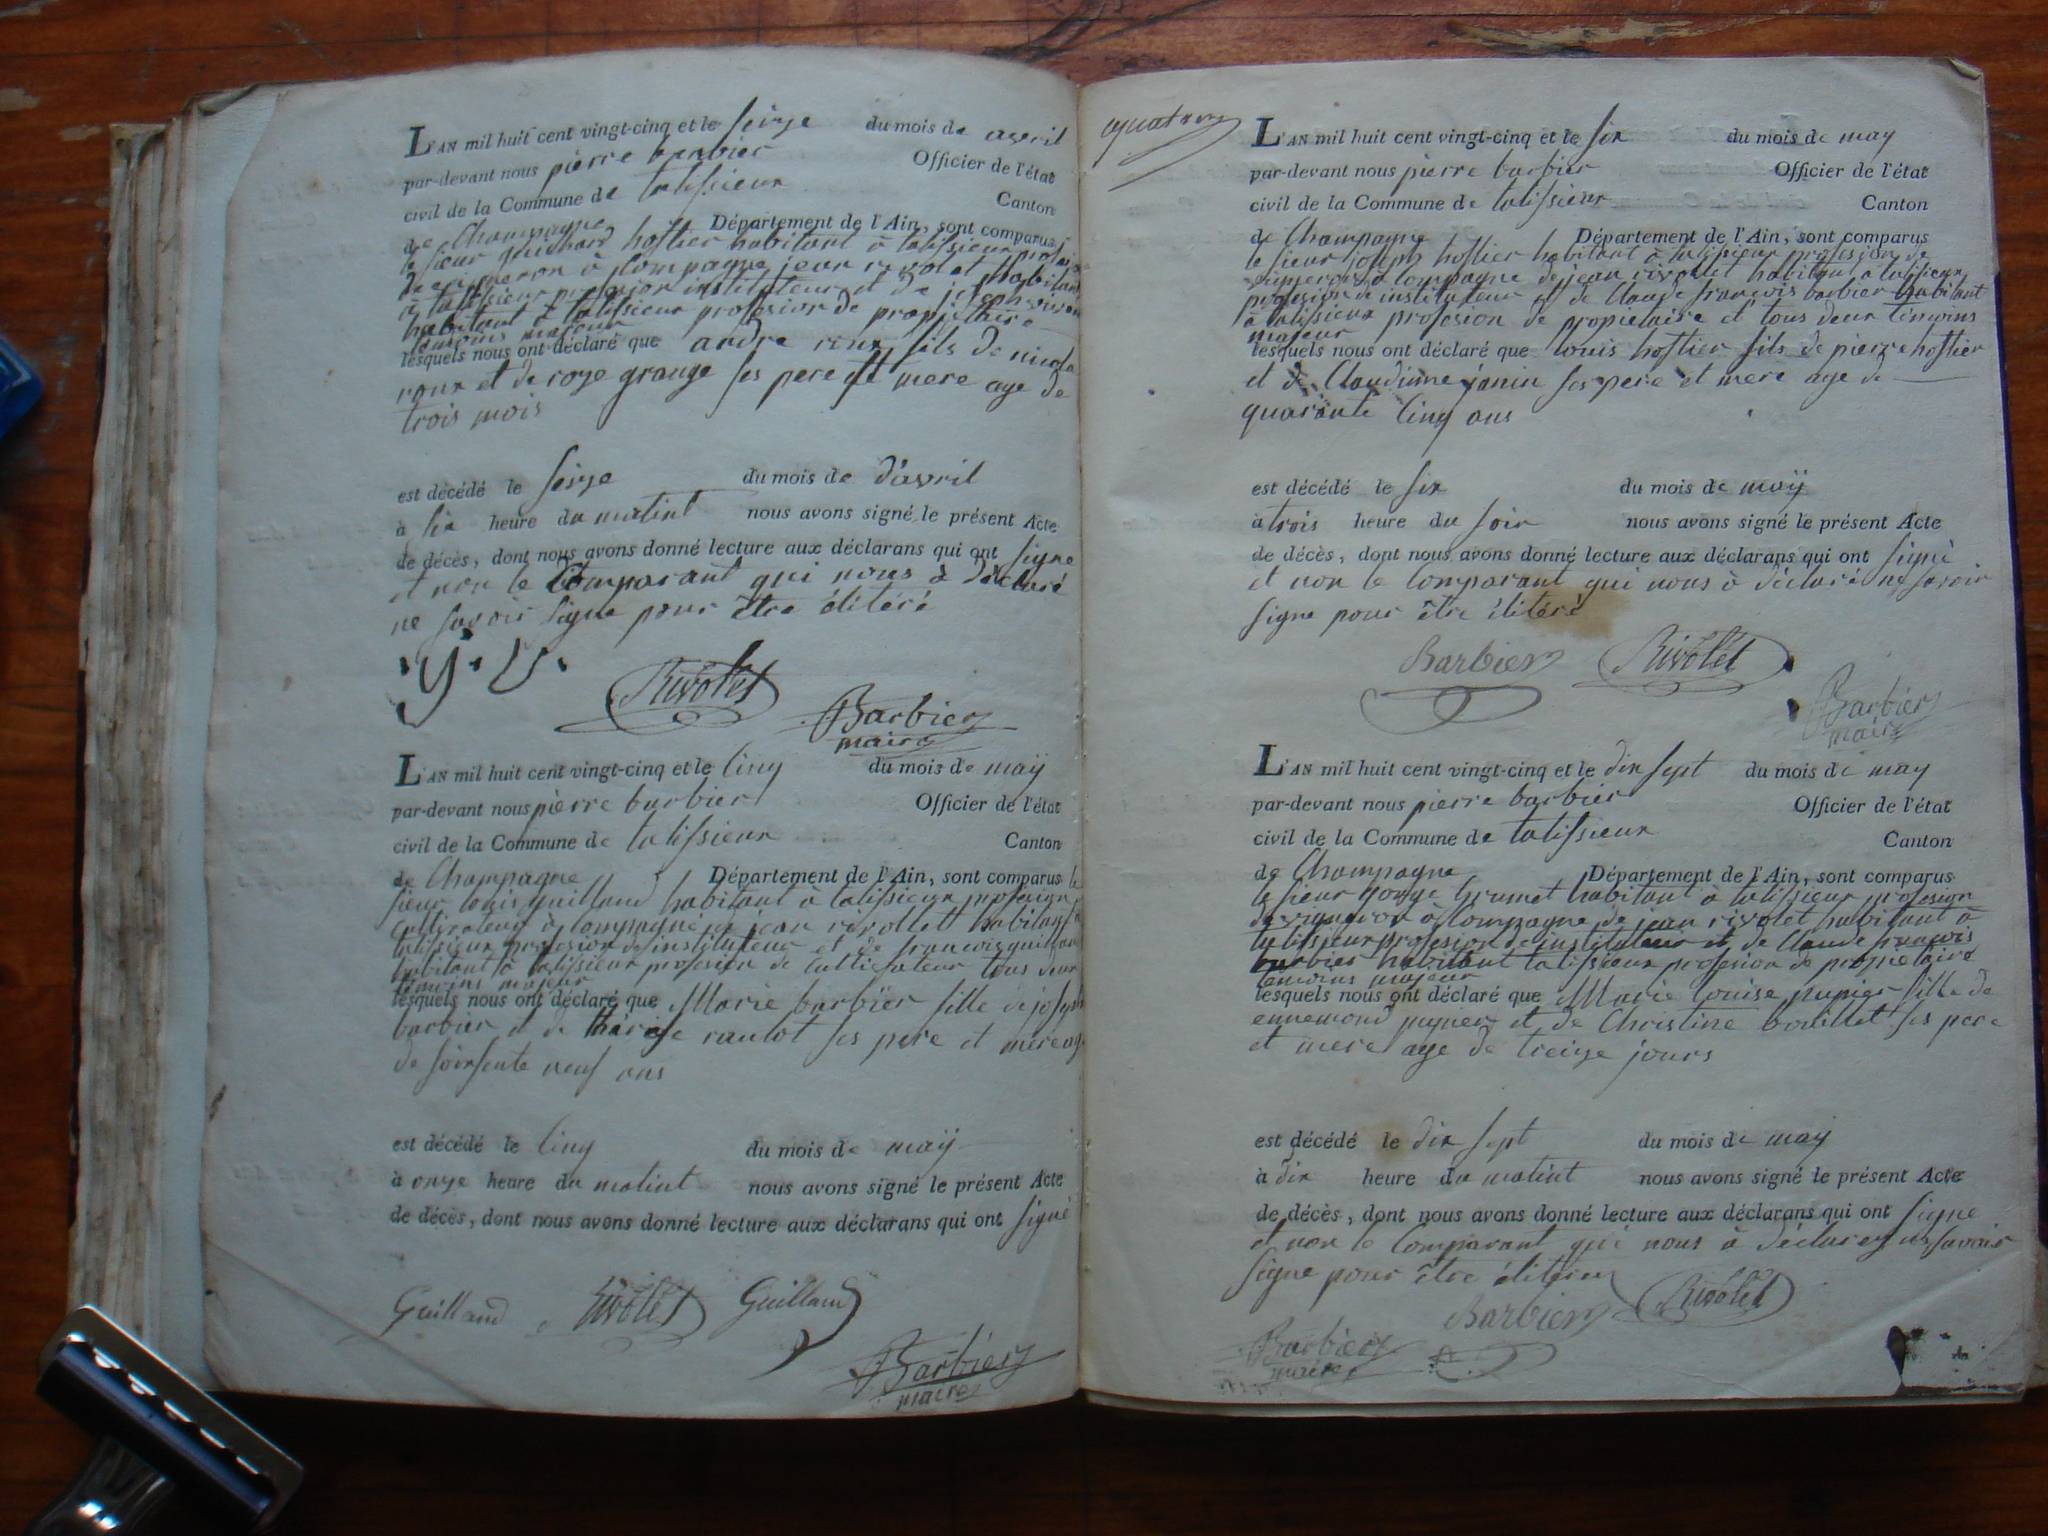 L'AN mil huit cent vingt-cinq et le seize du mois de avril
par-devant nous pierre barbier Officier de l'état
civil de la Commune de talissieux Canton
de Champagne Département de l'Ain, sont comparus
le sieur hostier habitant à talissieux
de vigneron à compagne jean rivolet habitant
à talissieux profesion instituteur et de joseph
habitant à talissieux profession de propiétaire
temoins majeur
lesquels nous ont déclaré que andre roux fils de nicola
roux et de roze grange ses pere et mere age de
trois mois
est décédé le seize du mois de d'avril
à six heure du matint nous avons signé le présent Acte
de décès, dont nous avons donné lecture aux déclarans qui ont signe
et non le Comparant qui nous à déclaré
ne savoir signe pour être élitéré
Rivolet
Barbier
maire
L'AN mil huit cent vingt-cinq et le cinq du mois de maÿ
par-devant nous pierre barbier Officier de l'état
civil de la Commune de talissieux Canton
de Champagne Département de l'Ain, sont comparus le
sieur louis guilland habitant à talissieux profesion
cultivateur à Compagnie de jean rivollet habitant
talissieux profesion de instituteur et de francois guilland
habitant à talissieux profesion de cultivateur tous deux
temoins majeur
lesquels nous ont déclaré que Marie barbier fille de joseph
barbier et de thérese rautot ses pere et mere age
de soixsente neuf ans
est décédé le cinq du mois de maÿ
à onze heure du matint nous avons signé le présent Acte
de décès, dont nous avons donné lecture aux déclarans qui ont signé
Guilland Rivolet Guilland
Barbier
maire
quatorze
L'AN mil huit cent vingt-cinq et le six du mois de may
par-devant nous pierre barbier Officier de l'état
civil de la Commune de talissieux Canton
de Champagne Département de l'Ain, sont comparus
le sieur joseph hostier habitant à talissieux profesion de
vigneron à compagne de jean rivollet habitant à talissieux
profesion de instituteur et de Claude francois barbier habitant
à talissieux profesion de propietaire et tous deux temoins
majeur
lesquels nous ont déclaré que louis hostier fils de pierre hostier
et de Claudinne janin ses pere et mere age de
quarante cinq ans
est décédé le six du mois de maÿ
à trois heure du soir nous avons signé le présent Acte
de décès, dont nous avons donné lecture aux déclarans qui ont signé
et non le Comparant qui nous à déclaré ne savoir
signe pour être élitéré
Barbier Rivolet
Barbier
maire
L'AN mil huit cent vingt-cinq et le dix sept du mois de may
par-devant nous pierre barbier Officier de l'état
civil de la Commune de talissieux Canton
de Champagne Département de l'Ain, sont comparus
le sieur gorge Grumet habitant à talissieux profesion
de vigneron à Compagne de jean rivolet habitant à
talissieux profesion de instituteur et de Claude francois
barbier habitant talissieux profesion de propietaire
temoins majeur
lesquels nous ont déclaré que Marie louise pupier fille de
ennemond pupier et de Christine bouillet ses pere
et mere age de treize jours
est décédé le dix sept du mois de may
à dix heure du matint nous avons signé le présent Acte
de décès, dont nous avons donné lecture aux déclarans qui ont signe
et non le Comparant qui nous à déclarez ne savoir
signe pour être
Barbier Rivolet
Barbier
maire